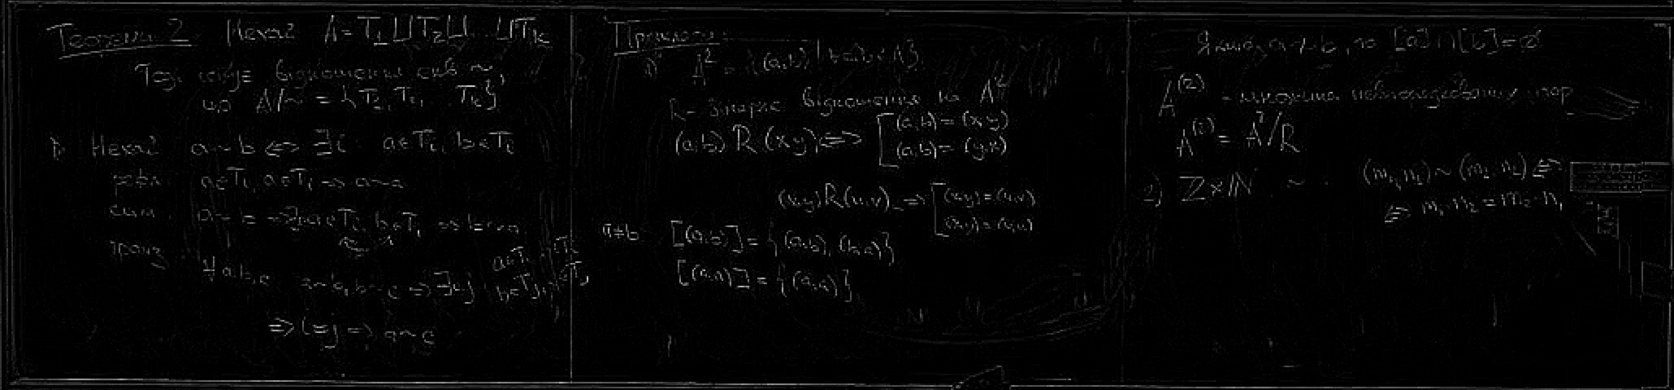 Теорема 2. Нехай A = T₁ ⊔ T₂ ⊔ ... ⊔ Tₖ
Тоді існує відношення екв. ~,
що A/~ = {T₁, T₂, ... Tₖ}
Нехай a ~ b ⇔ ∃i : a ∈ Tᵢ, b ∈ Tᵢ
рефл. a ∈ Tᵢ, a ∈ Tᵢ ⇒ a ~ a
сим. a ~ b ⇒ ∃i a ∈ Tᵢ, b ∈ Tᵢ ⇒ b ~ a
транз. ∀ a, b, c a ~ b, b ~ c ⇒ ∃ i, j
⇒ i = j ⇒ a ~ c
Приклади:
1) A² = {(a,b) |
R - бінарне відношення на A²
(a,b) R (x,y) ⇔ [ (a,b) = (x,y)
(a,b) = (y,x)
(x,y) R (u,v) ⇒ [ (x,y) = (u,v)
(x,y) = (v,u)
a ≠ b [(a,b)] = {(a,b), (b,a)}
[(a,a)] = {(a,a)}
Якщо a ≁ b, то [a] ∩ [b] = ∅
A⁽²⁾ - множина невпорядкованих пар
A⁽²⁾ = A²/R
2) ℤ × ℕ ~ (m₁, n₁) ~ (m₂, n₂) ⇔
⇔ m₁·n₂ = m₂·n₁